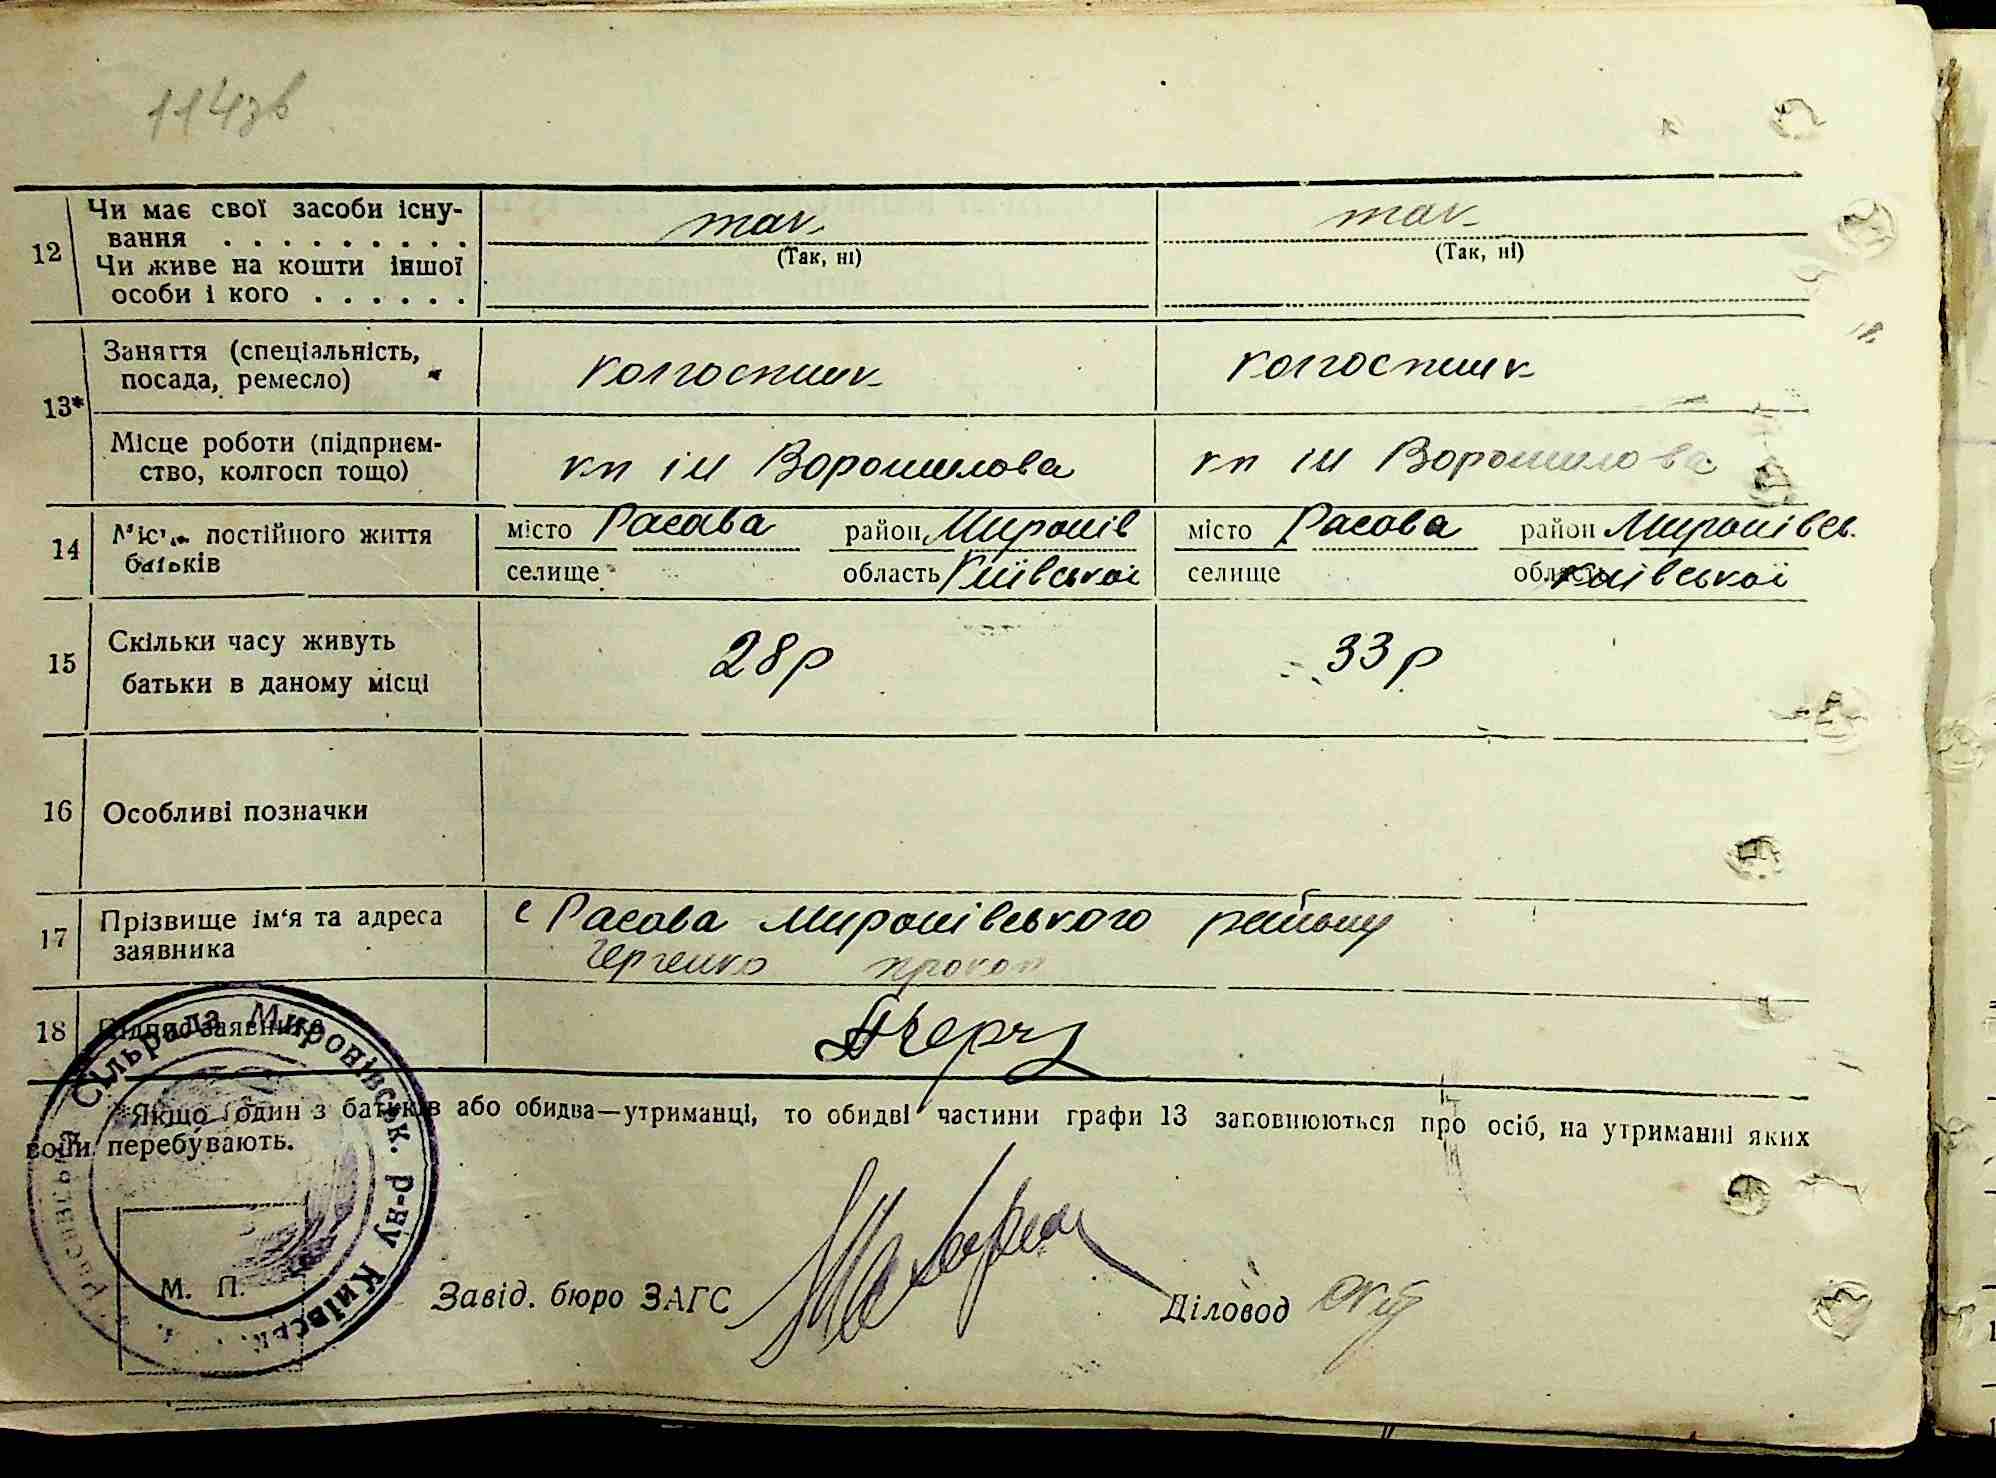 114зв
12 Чи має свої засоби існу-
вання . . . . . . . . . так так
(Так, ні) (Так, ні)
Чи живе на кошти іншої
особи і кого . . . . . .
Заняття (спеціальність,
посада, ремесло) колгоспник колгоспник
13*
Місце роботи (підприєм-
ство, колгосп тощо) кп ім Ворошилова кп ім Ворошилова
14 постійного життя місто Расава район Миронів місто Расава район Миронівсь.
батьків селище область Київської селище область Київської
15 Скільки часу живуть
батьки в даному місці 28р 33р
16 Особливі позначки
17 Прізвище ім'я та адреса
заявника с Расава Миронівського району
Черченко Прокоп
18 Підпис заявника ПЧерч
*Якщо один з батьків або обидва—утриманці, то обидві частини графи 13 заповнюються про осіб, на утриманні яких
вони перебувають.
Сільрада Миронівськ. р-ну Київськ.
М. П.
Завід. бюро ЗАГС Діловод